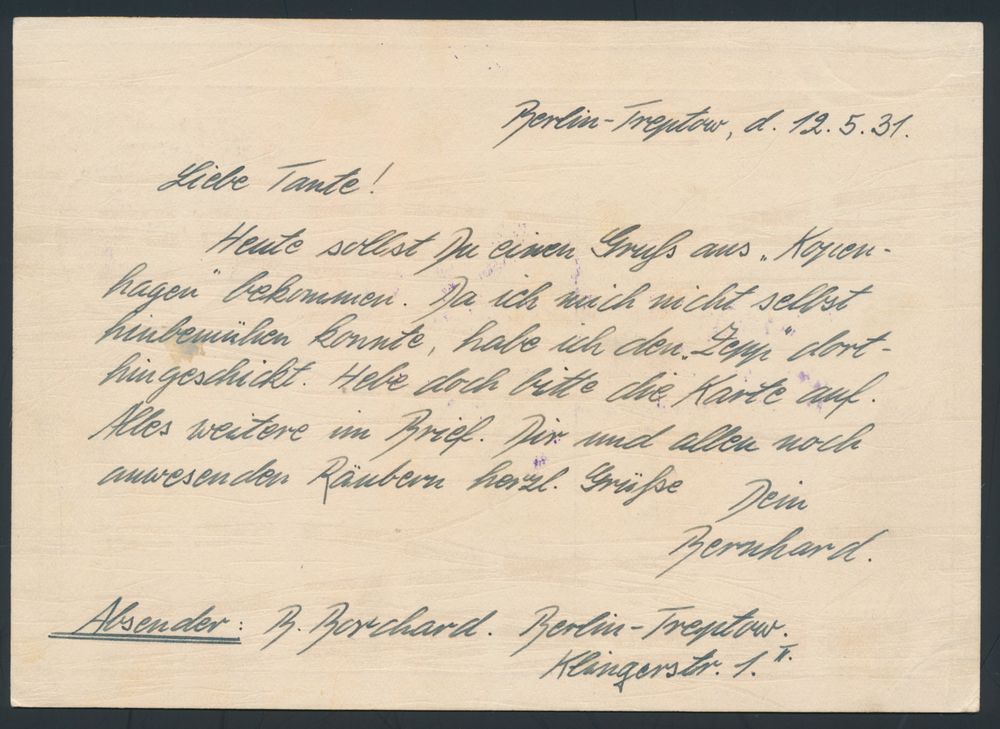 Berlin-Treptow, d. 12.5.31.
Liebe Tante!
Heute sollst Du einen Gruß aus „Kopen-
hagen" bekommen. Da ich mich nicht selbst
hinbemühen konnte, habe ich den „Zepp" dort-
hingeschickt. Hebe doch bitte die Karte auf.
Alles weitere im Brief. Dir und allen noch
anwesenden Räubern herzl. Grüße
Dein
Bernhard.
Absender: B. Borchard. Berlin-Treptow.
Klingerstr. 1.II.